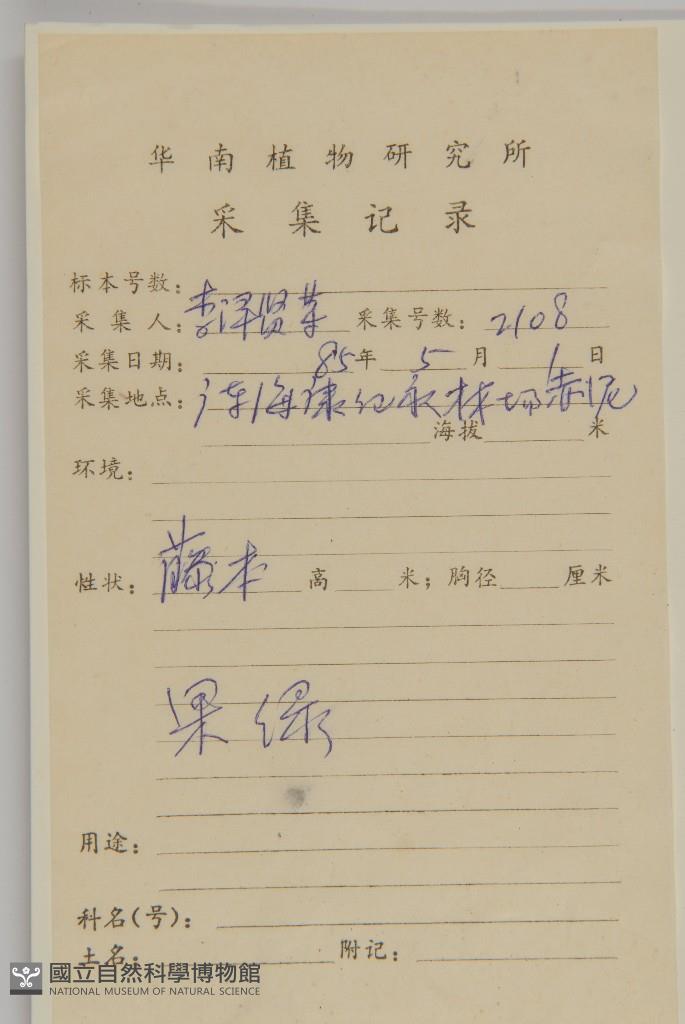 华南植物研究所
采集记录
标本号数:
采集人: 李泽贤等 采集号数: 2108
采集日期: 85年 5 月 1 日
采集地点: 广东海康纪家林场赤泥
海拔 米
环境:
性状: 藤本 高 米; 胸径 厘米
果绿
用途:
科名(号):
土名: 附记:
國立自然科學博物館
NATIONAL MUSEUM OF NATURAL SCIENCE